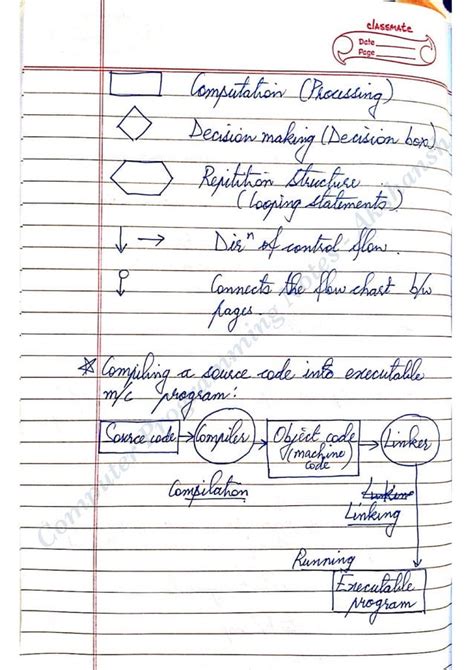 classmate
Date
Page
Computation (Processing)
Decision making (Decision box)
Repitition structure
(looping statements)
Dirⁿ of control flow.
Connects the flow chart b/w
pages.
* Compiling a source code into executable
m/c program:
Source code → Compiler → Object code (machine code) → Linker
Compilation
Linking
Linking
Running
Executable
program
Computer Programming Notes - Akshansh